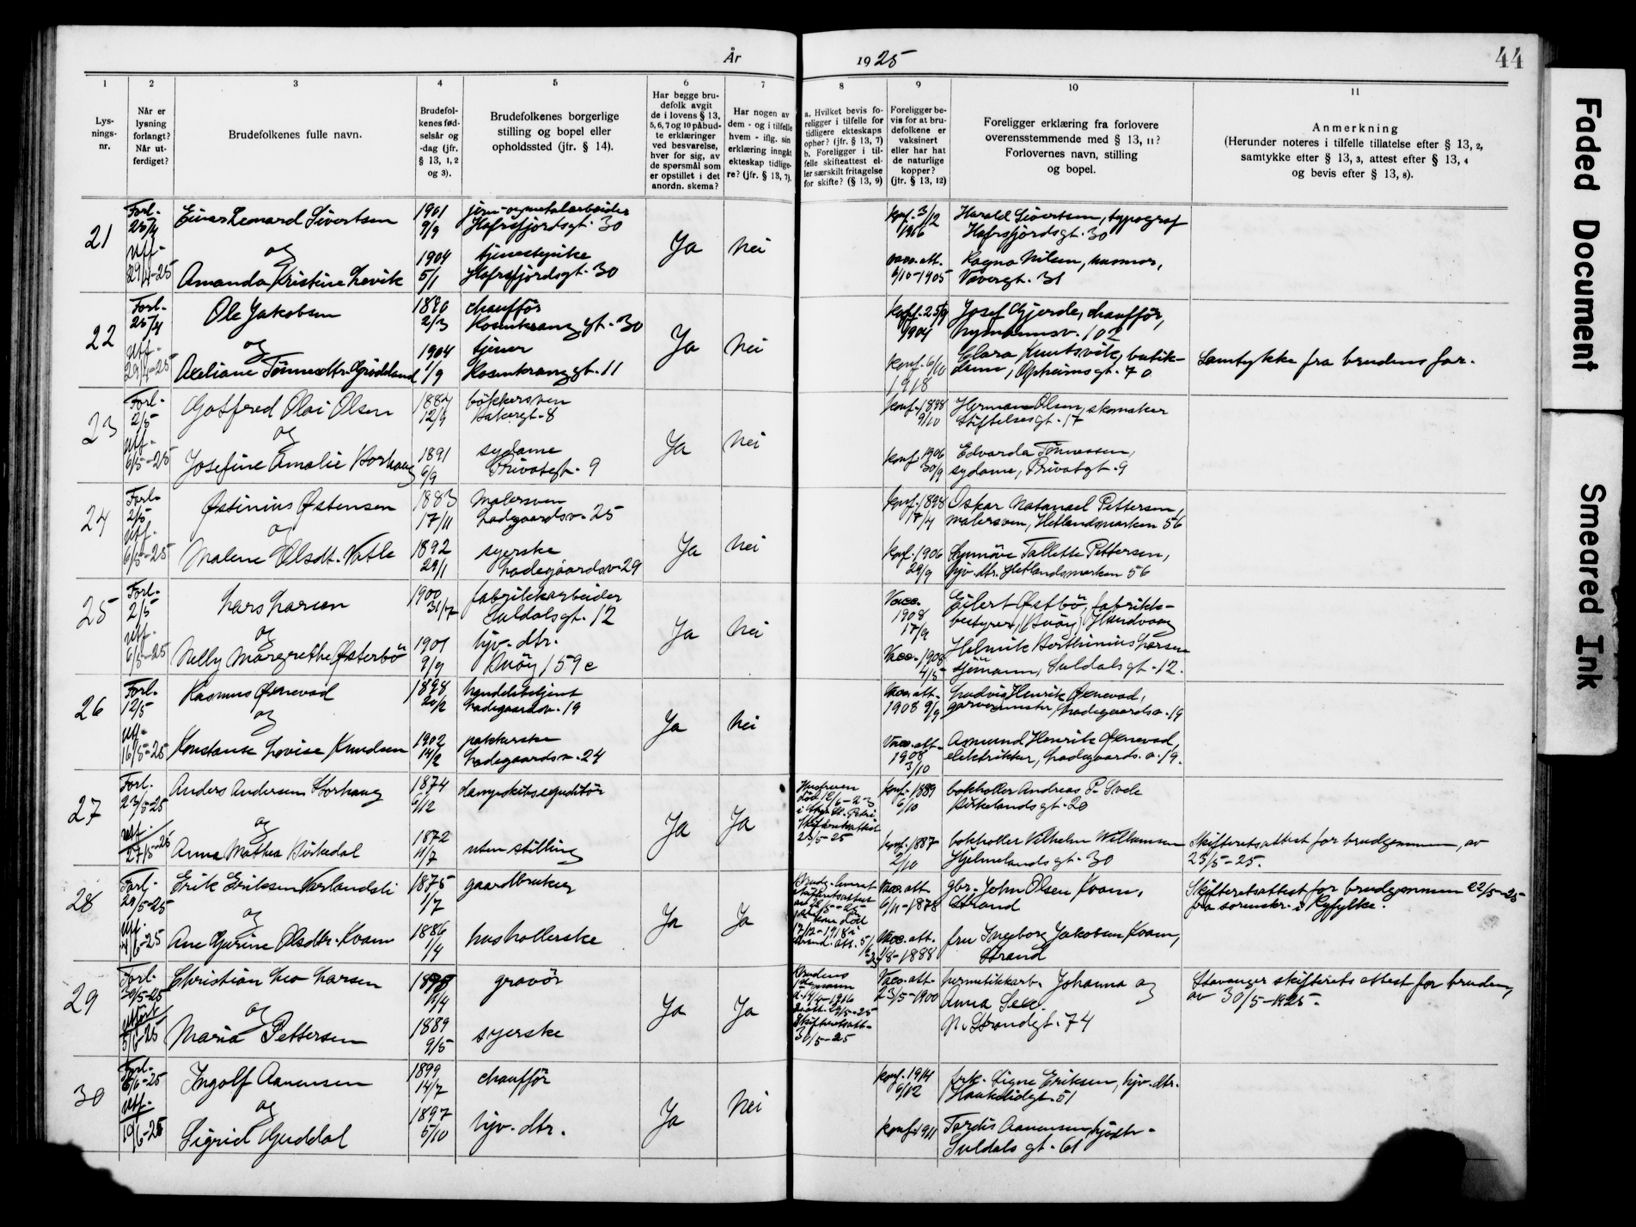 År 1925
44
1
2
3
4
5
6
7
8
9
10
11
Lys-
nings-
nr.
Når er
lysning
forlangt?
Når ut-
ferdiget?
Brudefolkenes fulle navn.
Brudefol-
kenes fød-
selsår og
-dag (jfr.
§ 13, 1, 2
og 3).
Brudefolkenes borgerlige
stilling og bopel eller
opholdssted (jfr. § 14).
Har begge bru-
defolk avgit
de i lovens § 13,
5, 6, 7 og 10 påbud-
te erklæringer
ved besvarelse,
hver for sig, av
de spørsmål som
er opstillet i det
anordn. skema?
Har nogen av
dem - og i tilfelle
hvem - iflg. sin
erklæring inngått
ekteskap tidlige-
re? (jfr. § 13, 7).
a. Hvilket bevis fo-
religger i tilfelle for
tidligere ekteskaps
ophør? (jfr. § 13, 7)
b. Foreligger i til-
felle skifteattest el-
ler særskilt fritagelse
for skifte? (§ 13, 9)
Foreligger be-
vis for at bru-
defolkene er
vaksinert
eller har hat
de naturlige
kopper?
(jfr. § 13, 12)
Foreligger erklæring fra forlovere
overensstemmende med § 13, 11?
Forlovernes navn, stilling
og bopel.
Anmerkning
(Herunder noteres i tilfelle tillatelse efter § 13, 2,
samtykke efter § 13, 3, attest efter § 13, 4
og bevis efter § 13, 8).
21
Forl.
25/4
Utf.
29/4-25
Einar Leonard Sivertsen
og
Amanda Kristine Levik
1901
9/9
1904
5/1
jern- og metalarbeider
Hafrsfjordsgt. 30
tjenestepike
Hafrsfjordsgt. 30
Ja
Nei
konf. 3/12
1916
vacc. att.
6/10-1905
Harald Sivertsen, typograf
Hafrsfjordsgt. 30
Ragna Nilsen, husmor,
Vævergt. 31
22
Forl.
25/4
Utf.
29/4-25
Ole Jakobsen
og
Axeliane Tønnesdtr. Grødeland
1890
2/3
1904
1/9
chauffør
Rosenkranzgt. 30
tjener
Rosenkranzgt. 11
Ja
Nei
konf. 25/9
1904
konf. 6/10
1918
Josef Gjerde, chauffør,
Nymannsv. 102
Clara Knutsvik, butik-
dame, Opheimsgt. 70
Samtykke fra brudens far.
23
Forl.
2/5
Utf.
6/5-25
Gotfred Olai Olsen
og
Josefine Amalie Storhaug
1884
12/9
1891
6/9
bøkkersven
Bakergt. 8
sydame
Privatgt. 9
Ja
Nei
konf. 1898
9/10
konf. 1906
30/9
Herman Olsen, skomaker
Stiftelsesgt. 17
Edvarda Tønnessen,
sydame, Privatgt. 9
24
Forl.
2/5
Utf.
6/5-25
Østinius Østensen
og
Malene Olsdt. Vatle
1883
17/11
1892
29/1
Malersven
Ladegaardsv. 25
syerske
Ladegaardsv. 29
Ja
Nei
konf. 1898
17/4
konf. 1906
29/9
Oskar Natanael Pettersen,
malersven, Hetlandsmarken 56
Synnøve Tallette Pettersen,
hjv. dtr. Hetlandsmarken 56
25
Forl.
2/5
Utf.
6/5-25
Lars Larsen
og
Nelly Margrethe Østerbö
1900
31/7
1901
9/9
fabrikkarbeider
Suldalsgt. 12
hjv. dtr.
Buöy 159 c
Ja
Nei
Vacc.
1908
17/9
Vacc. 1908
4/5
Eilert Østbö, fabrikk-
bestyrer, Buöy, Hundvaag
Helmik Berthinius Larsen
sjömann, Suldalsgt. 12.
26
Forl.
12/5
Utf.
16/5-25
Rasmus Øknevad
og
Konstanse Lovise Knudsen
1898
20/2
1902
14/2
handelsbetjent
Ladegaardsv. 19
pakkerske
Ladegaardsv. 24
Ja
Nei
Vacc. att.
1908 9/9
Vacc. att.
1908
3/10
Ludvig Henrik Øknevad,
garvermester, Ladegaardsv. 19
Asmund Henrik Øknevad,
elektriker, Ladegaardsv. 19.
27
Forl.
23/5-25
Utf
27/5-25
Anders Andersen Storhaug
og
Anna Mathea Birkedal
1874
6/12
1872
11/7
dampskibsexpeditør
uten stilling
Ja
Ja
Hustruen
død 12/6-23
25/5-25
konf. 1889
6/10
konf. 1887
2/10
bokholder Andreas P. Svele
Kirkelandsgt. 20
bokholder Vilhelm Williamsen
Hjelmelandsgt. 30
Skifteretsattest for brudgommen, av
25/5-25.
28
Forl.
29/5-25
Utf.
4/6-25
Erik Eriksen Varlandsli
og
Ane Gurine Olsdtr. Kvam
1875
1/7
1886
1/4
gaardbruker
husholderske
Ja
Ja
Vacc. att.
6/11-1878
Vacc. att.
1/8-1888
gbr. John Olsen Kvam,
Strand
fru Ingeborg Jakobsen Kvam,
Strand
Skifteretsattest for brudgommen 22/5-25
fra sorenskr. i Ryfylke.
29
Forl.
30/5-25
Utferd.
5/6-25
Christian Leo Larsen
og
Maria Pettersen
11/4
1889
9/5
gravør
syerske
Ja
Ja
Brudens
Skifteretsatt.
30/5-25
Vacc. att.
23/5-1900
hermetikkarb. Johanna og
Anna Lea.
N. Strandgt. 74
Stavanger skifterets attest for bruden,
av 30/5-1925.
30
Forl.
6/6-25
Utf.
19/6-25
Ingolf Aanensen
og
Sigrid Guddal
1899
14/7
1897
5/10
chauffør
hjv. dtr.
Ja
Nei
konf. 1914
6/12
konf. 1911
frk. Signe Eriksen, hjv. dtr.
Haukelidgt. 51
Tordis Aanensen, hjvdtr.
Suldals gt. 61
Faded Document
Smeared Ink